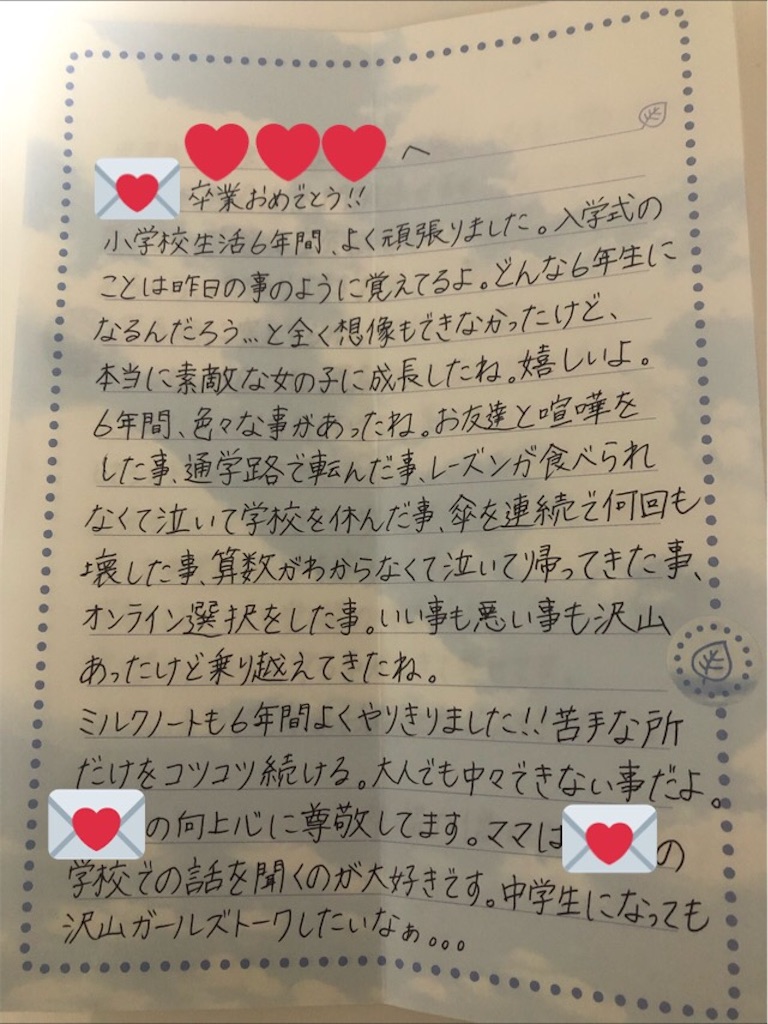 へ
卒業おめでとう!!
小学校生活6年間、よく頑張りました。入学式の
ことは昨日の事のように覚えてるよ。どんな6年生に
なるんだろう…と全く想像もできなかったけど、
本当に素敵な女の子に成長したね。嬉しいよ。
6年間、色々な事があったね。お友達と喧嘩を
した事、通学路で転んだ事、レーズンが食べられ
なくて泣いて学校を休んだ事、傘を連続で何回も
壊した事、算数がわからなくて泣いて帰ってきた事、
オンライン選択をした事。いい事も悪い事も沢山
あったけど乗り越えてきたね。
ミルクノートも6年間よくやりきりました!!苦手な所
だけをコツコツ続ける。大人でも中々できない事だよ。
の向上心に尊敬してます。ママはの
学校での話を聞くのが大好きです。中学生になっても
沢山ガールズトークしたいなぁ。。。